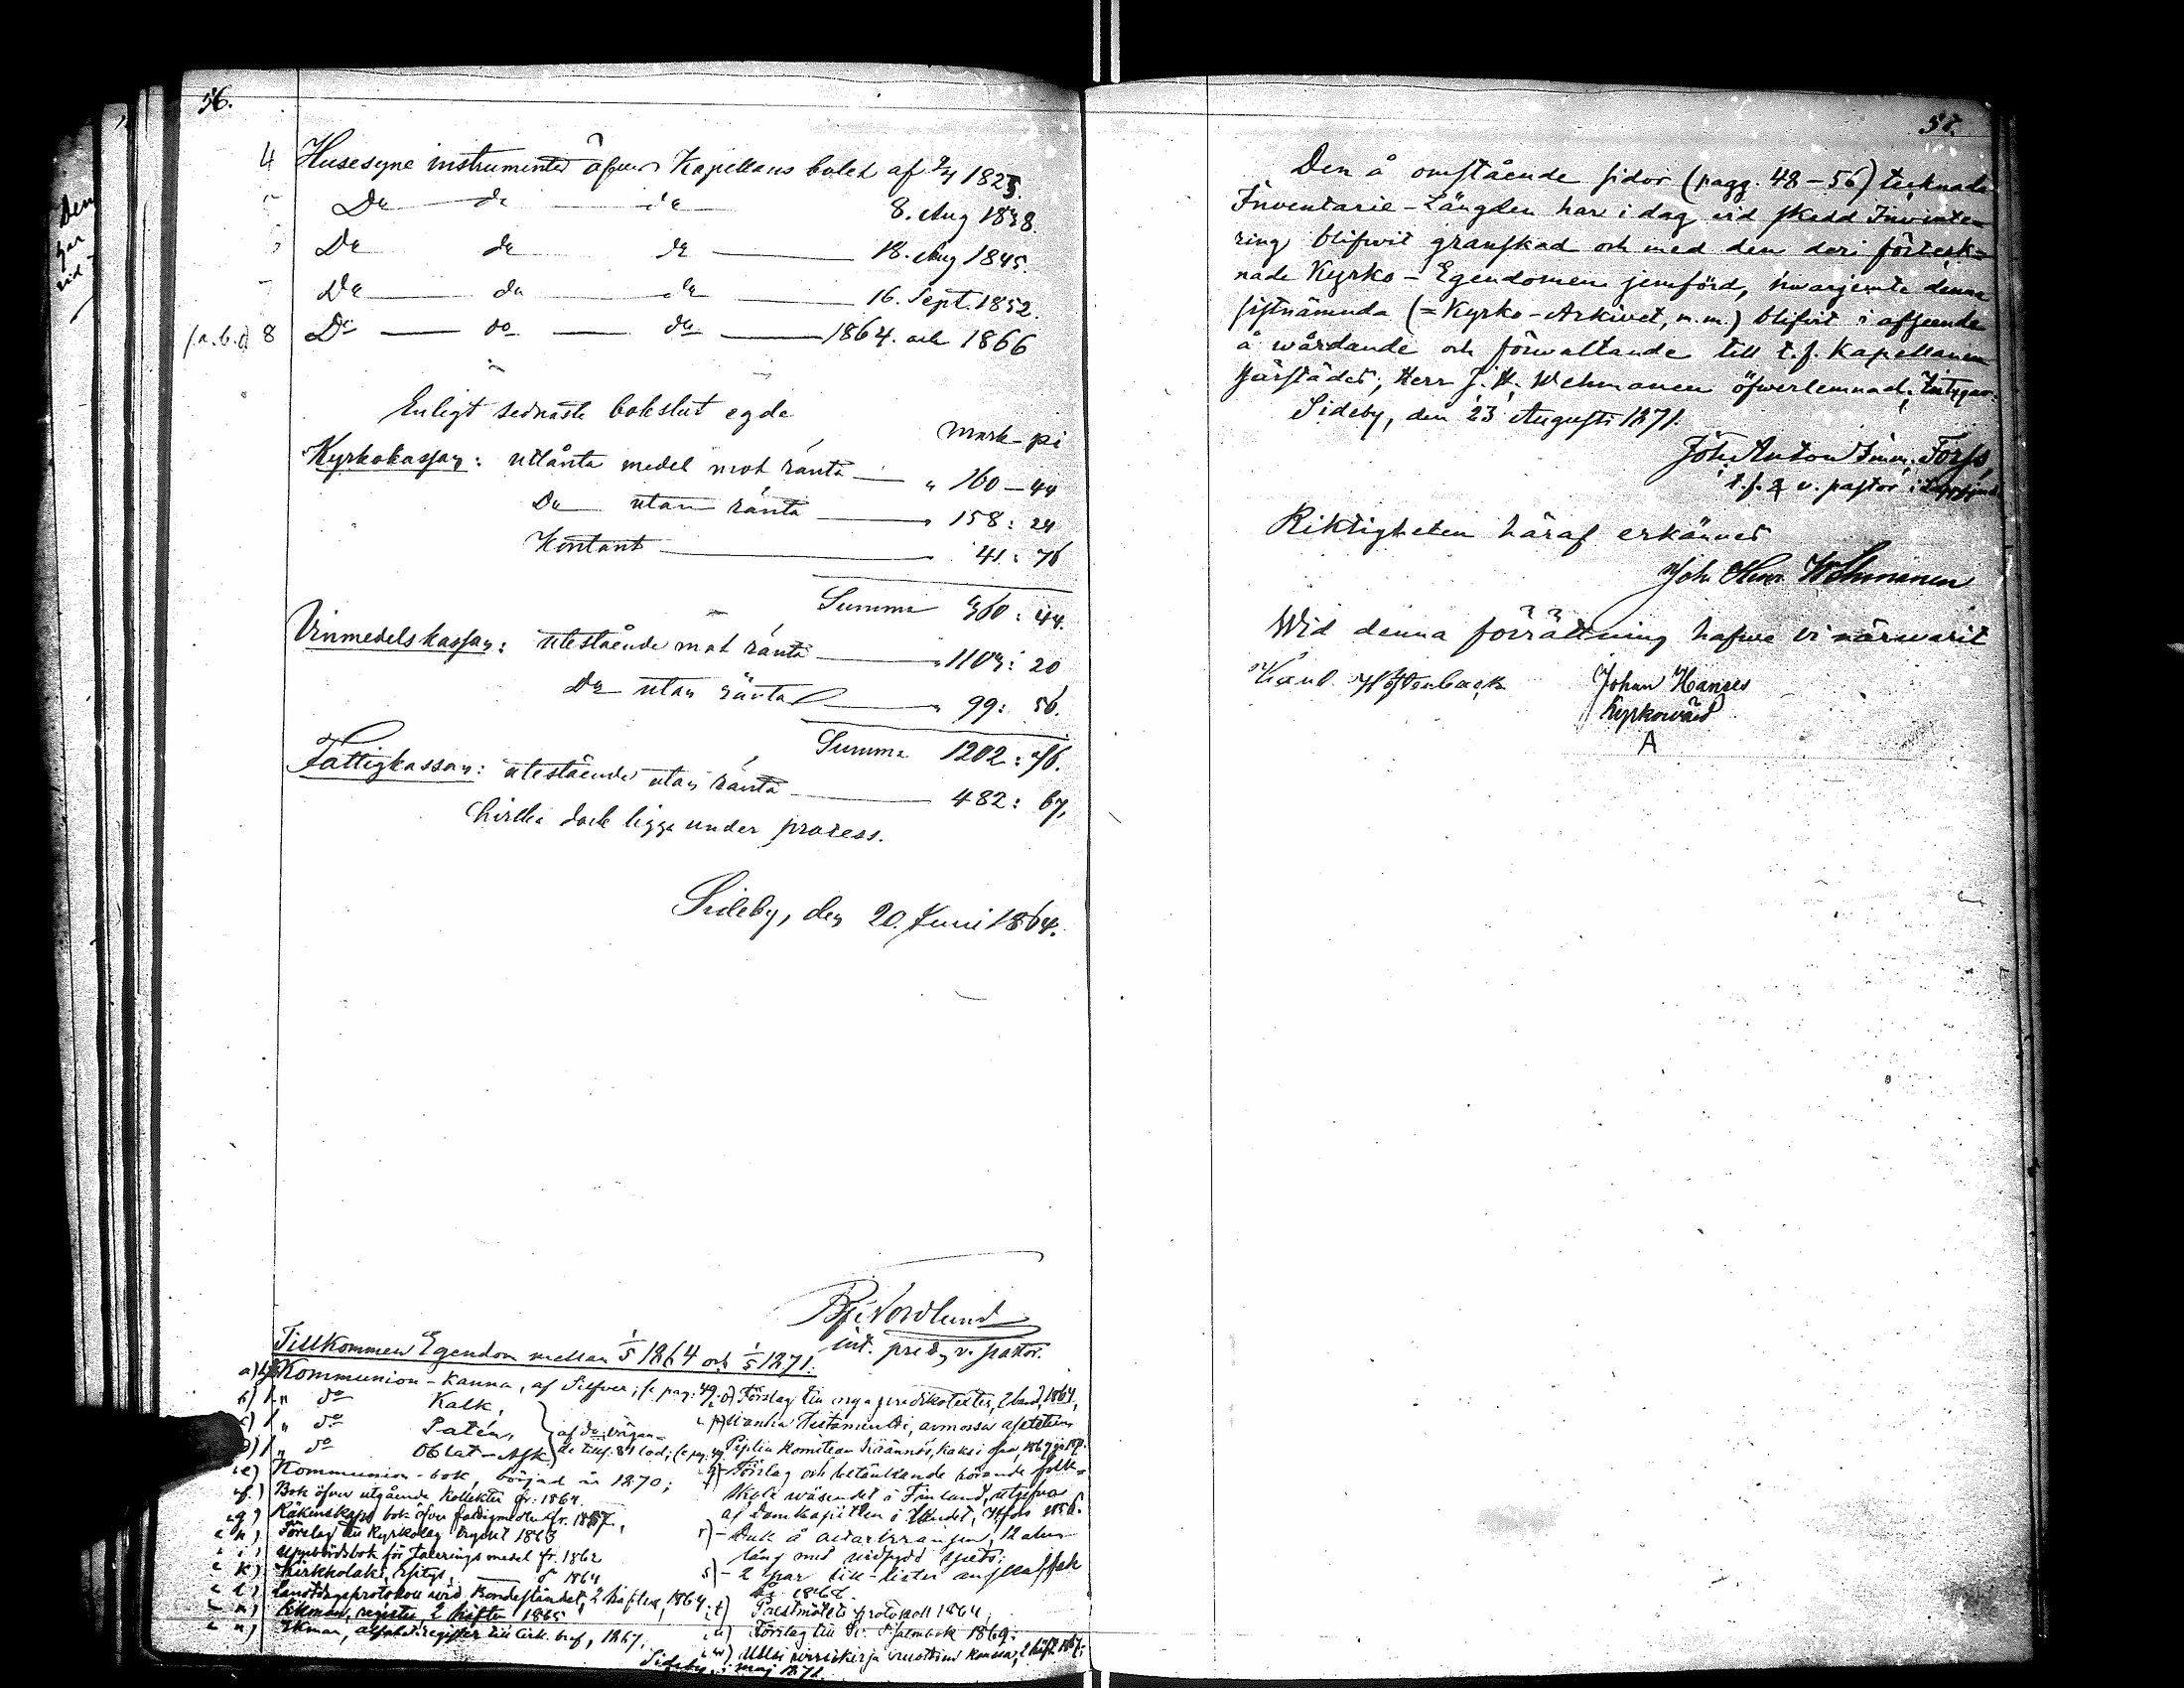 56.
4 Husesyne instrumenter öfver Kapellans bolet af 2/4 1825.
Do do do 8. Aug 1838.
Do do do 18. Aug 1845.
Do do do 16. Sept. 1852.
(a.b.c) 8 Do do do 1864. och 1866
Enligt sednaste bokslut egde
Mark pi
Kyrkokassan: utlånta medel mot ränta " 160 - 44
Do utan ränta " 158: 24
Kontant " 41: 76
Summa 360: 44.
Vinmedelskassan: utestående mot ränta " 1103: 20
Do utan ränta " 99: 56.
Summa 1202: 76.
Fattigkassan: utestående utan ränta 482: 67,
hvilka dock ligga under process.
Sideby, den 20. Juni 1864.
Nordlund
int. pred. v. pastor.
Tillkommen Egendom mellan 1/5 1864 och 1/5 1871.
a) Kommunion-kanna, af Silfver; (c pag: 49.
b) 1 " do Kalk,
c) 1 " do Patén,
d) 1 " do Oblat-Ask
e) Kommunion-bok, börjad år 1870;
f.) Bok öfver utgående Kollekter fr. 1864.
g) Räkenskaps bok öfver fattigmedlen fr. 1867,
h) Förslag till Kyrkolag tryckt 1863
i) Uppbördsbok för medel fr. 1862
k) Kirkkolaki, Esitys, do 1864
l) Landtdagsprotokoll vid Bondeståndet, 2 häften, 1864
m) Ekman, register, 2 häften 1865
n) Ekman, alfabet. register till Cirk. bref, 1867.
o) Förslag till nya predikotexter, 2 band, 1864,
Piplia Komitean
q) Förslag och betänkande rörande folk-
skole wäsendet i Finland, utgifva
af Domkapitlen i Landet, Hfors 1856.
r) - Duk å altar, 12 alnar
lång med
s) - 2 par
år 1868
t) Prestmötets protokoll 1864,
u) Förslag till Sv. Psalmbok 1869;
Sideby, i maj 1871.
57.
Den å omstående sidor (pagg. 48-56) tecknade
Inventarie-Längden har i dag vid skedd Invente-
ring blifvit granskad och med den deri förteck-
nade Kyrko-Egendomen jemförd, hvarjemte denna
sistnämnda (= Kyrko-Arkivet, m.m.) blifvit i afseende
å wårdande och förvaltande till t.f. Kapellanen
härstädes, Herr J. H. Wehmanen öfwerlemnad; Intygar:
Sideby, den 23 Augusti 1871.
Joh. Anton Forss,
t.f. v. pastor i Lappfjärd
Riktigheten häraf erkännes
Joh. Henr. Wehmanen
Wid denna förrättning hafwa vi närwarit
Johan Hanses
Kyrkowärd